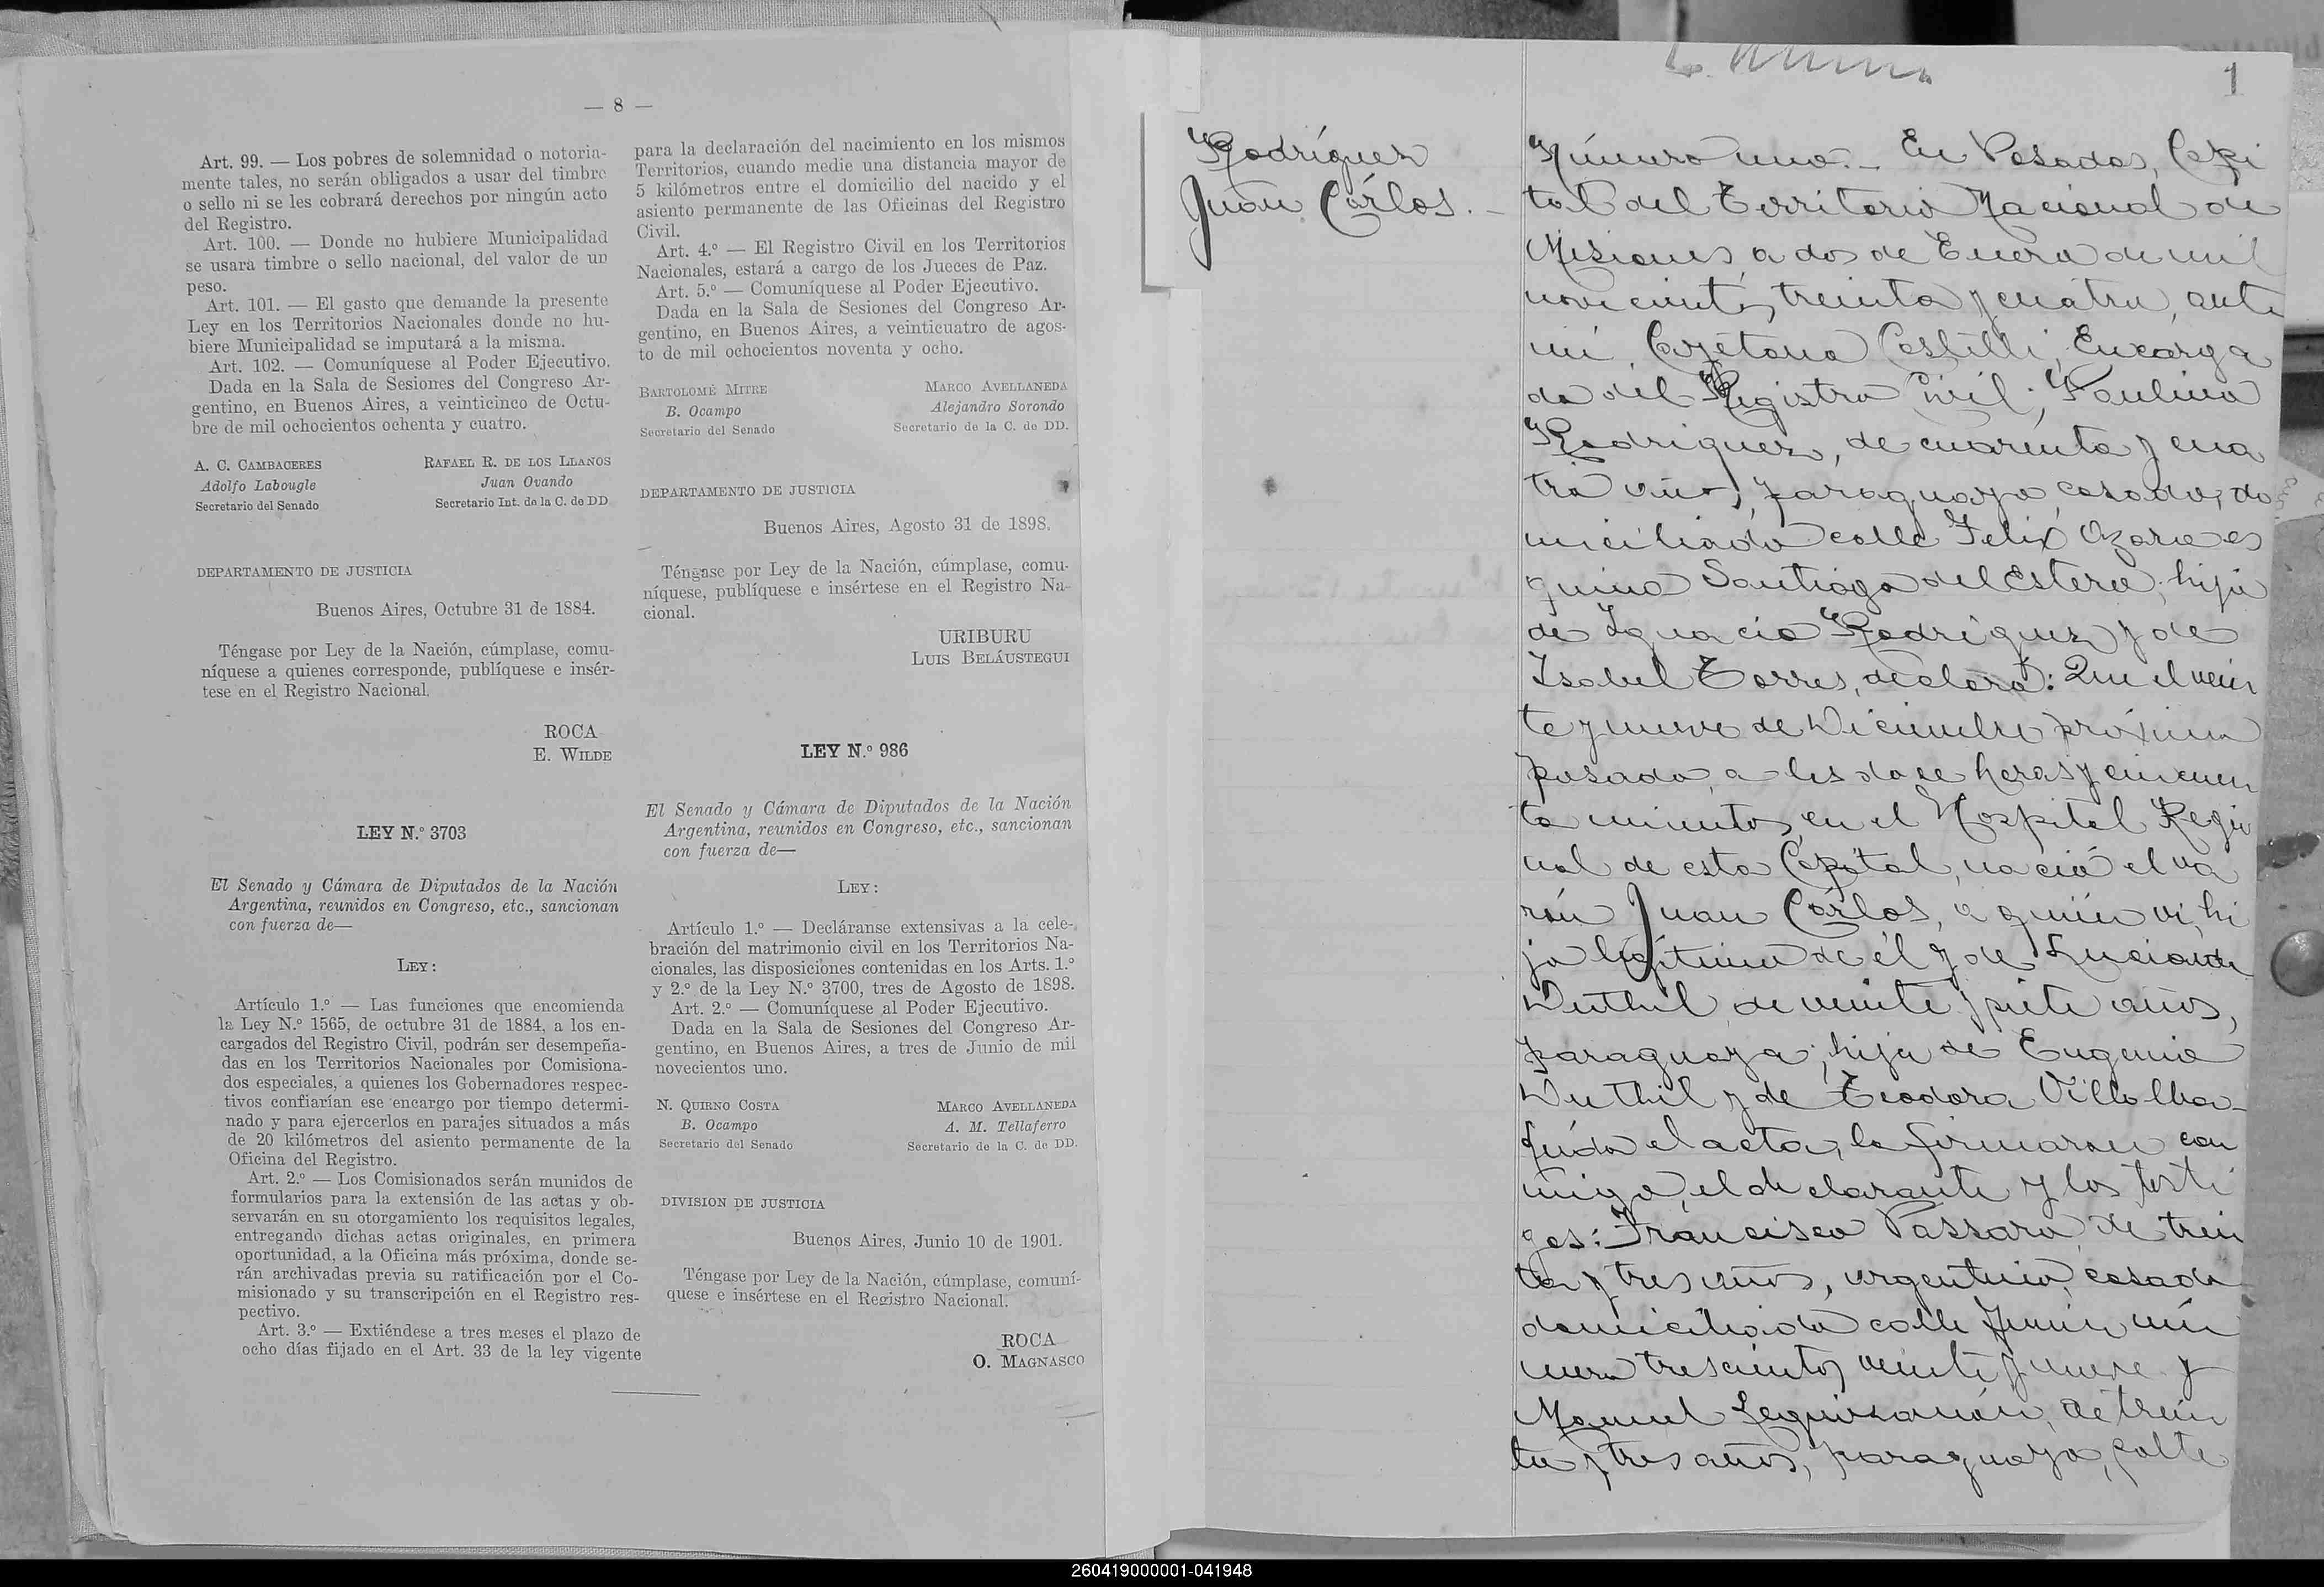 — 8 —
Art. 99. — Los pobres de solemnidad o notoria-
mente tales, no serán obligados a usar del timbre
o sello ni se les cobrará derechos por ningún acto
del Registro.
Art. 100. — Donde no hubiere Municipalidad
se usará timbre o sello nacional, del valor de un
peso.
Art. 101. — El gasto que demande la presente
Ley en los Territorios Nacionales donde no hu-
biere Municipalidad se imputará a la misma.
Art. 102. — Comuníquese al Poder Ejecutivo.
Dada en la Sala de Sesiones del Congreso Ar-
gentino, en Buenos Aires, a veinticinco de Octu-
bre de mil ochocientos ochenta y cuatro.
A. C. CAMBACERES RAFAEL R. DE LOS LLANOS
Adolfo Labougle Juan Ovando
Secretario del Senado Secretario Int. de la C. de DD
DEPARTAMENTO DE JUSTICIA
Buenos Aires, Octubre 31 de 1884.
Téngase por Ley de la Nación, cúmplase, comu-
níquese a quienes corresponde, publíquese e insér-
tese en el Registro Nacional.
ROCA
E. WILDE
LEY N.º 3703
El Senado y Cámara de Diputados de la Nación
Argentina, reunidos en Congreso, etc., sancionan
con fuerza de—
LEY:
Artículo 1.º — Las funciones que encomienda
la Ley N.º 1565, de octubre 31 de 1884, a los en-
cargados del Registro Civil, podrán ser desempeña-
das en los Territorios Nacionales por Comisiona-
dos especiales, a quienes los Gobernadores respec-
tivos confiarían ese encargo por tiempo determi-
nado y para ejercerlos en parajes situados a más
de 20 kilómetros del asiento permanente de la
Oficina del Registro.
Art. 2.º — Los Comisionados serán munidos de
formularios para la extensión de las actas y ob-
servarán en su otorgamiento los requisitos legales,
entregando dichas actas originales, en primera
oportunidad, a la Oficina más próxima, donde se-
rán archivadas previa su ratificación por el Co-
misionado y su transcripción en el Registro res-
pectivo.
Art. 3.º — Extiéndese a tres meses el plazo de
ocho días fijado en el Art. 33 de la ley vigente
para la declaración del nacimiento en los mismos
Territorios, cuando medie una distancia mayor de
5 kilómetros entre el domicilio del nacido y el
asiento permanente de las Oficinas del Registro
Civil.
Art. 4.º — El Registro Civil en los Territorios
Nacionales, estará a cargo de los Jueces de Paz.
Art. 5.º — Comuníquese al Poder Ejecutivo.
Dada en la Sala de Sesiones del Congreso Ar-
gentino, en Buenos Aires, a veinticuatro de agos-
to de mil ochocientos noventa y ocho.
BARTOLOMÉ MITRE MARCO AVELLANEDA
B. Ocampo Alejandro Sorondo
Secretario del Senado Secretario de la C. de DD.
DEPARTAMENTO DE JUSTICIA
Buenos Aires, Agosto 31 de 1898.
Téngase por Ley de la Nación, cúmplase, comu-
níquese, publíquese e insértese en el Registro Na-
cional.
URIBURU
LUIS BELÁUSTEGUI
LEY N.º 986
El Senado y Cámara de Diputados de la Nación
Argentina, reunidos en Congreso, etc., sancionan
con fuerza de—
LEY:
Artículo 1.º — Decláranse extensivas a la cele-
bración del matrimonio civil en los Territorios Na-
cionales, las disposiciones contenidas en los Arts. 1.º
y 2.º de la Ley N.º 3700, tres de Agosto de 1898.
Art. 2.º — Comuníquese al Poder Ejecutivo.
Dada en la Sala de Sesiones del Congreso Ar-
gentino, en Buenos Aires, a tres de Junio de mil
novecientos uno.
N. QUIRNO COSTA MARCO AVELLANEDA
B. Ocampo A. M. Tellaferro
Secretario del Senado Secretario de la C. de DD.
DIVISION DE JUSTICIA
Buenos Aires, Junio 10 de 1901.
Téngase por Ley de la Nación, cúmplase, comuní-
quese e insértese en el Registro Nacional.
ROCA
O. MAGNASCO
1
Rodríguez
Juan Cárlos.-
Número uno.- En Posadas, Capi
tal del Territorio Nacional de
Misiones, a dos de Enero de mil
novecientos treinta y cuatro, ante
mi, Cayetano Castelli, Encarga
do del Registro Civil; Paulino
Rodriguez, de cuarenta y cua
tro años, paraguayo, casado, do
miciliado calle Felix Azara es
quina Santiago del Estero, hijo
de Ignacio Rodriguez y de
Isabel Torres, declaró: Que el vein
te y nueve de Diciembre próximo
pasado, a las doce horas y cincuen
ta minutos, en el Hospital Regio
nal de esta Capital, nació el va
rón Juan Cárlos, a quien vi, hi
jo legítimo de él y de Luciana
Duthil, de veinte y siete años,
paraguaya; hija de Eugenio
Duthil y de Teodora Villalba-
Leída el acta, la firmaron con
migo, el declarante y los testi
gos: Francisco Passaro, de trein
ta y tres años, argentino, casado
domiciliado calle Junin nú
mero trescientos veinte y nueve y
Manuel Leguizamón, de trein
ta y tres años, paraguayo, solte
260419000001-041948